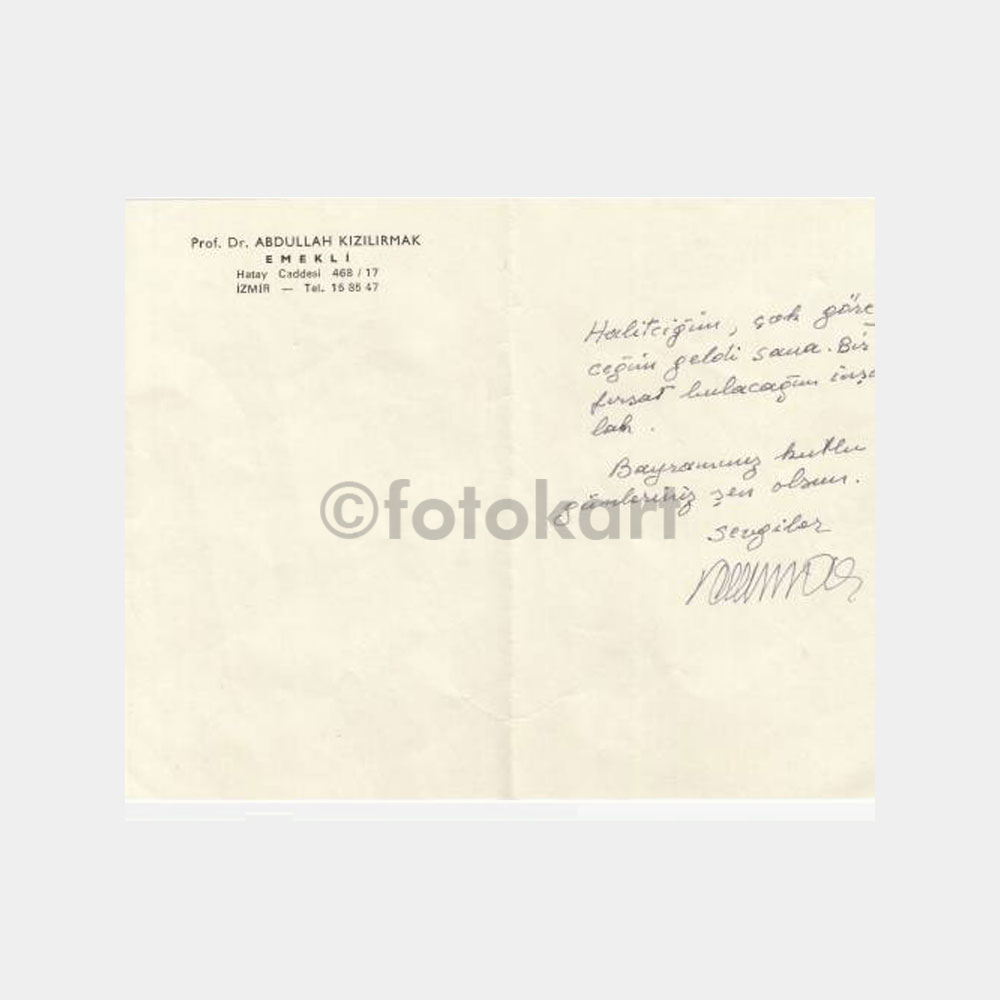 Prof. Dr. ABDULLAH KIZILIRMAK
EMEKLİ
Hatay Caddesi 468 / 17
İZMİR — Tel. 15 85 47
Halitciğim, çok göre
ceğim geldi sana. Bir
fırsat bulacağım inşa
lah.
Bayramınız kutlu
günleriniz şen olsun.
Sevgiler
©fotokart